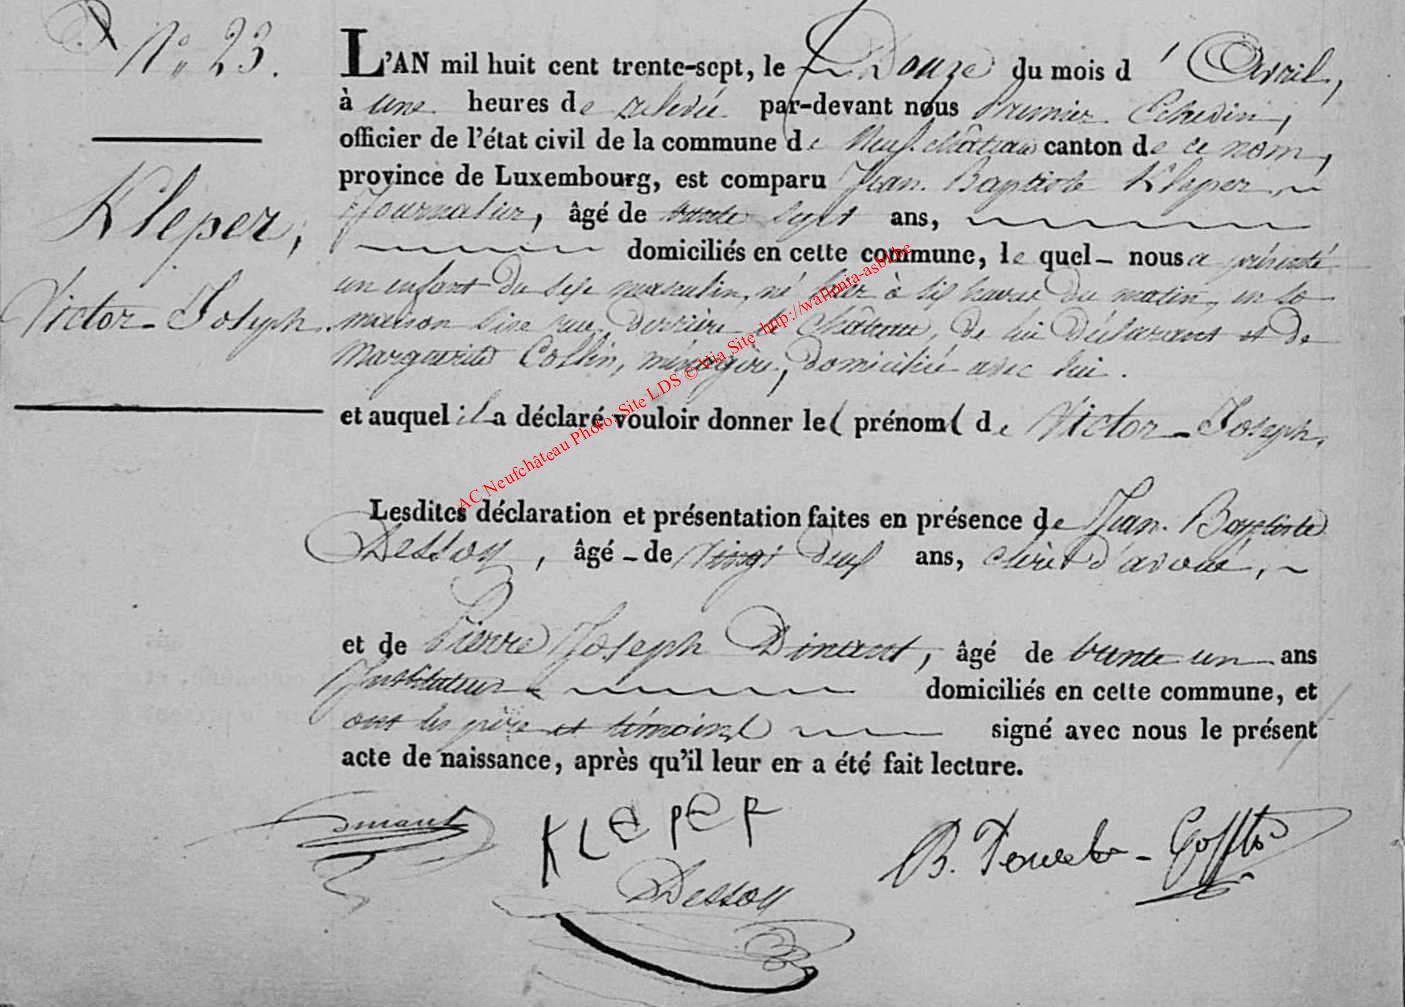 N° 23.
Kleper,
Victor-Joseph.
L'AN mil huit cent trente-sept, le Douze du mois d'Avril,
à une heures de relevée par-devant nous Premier Echevin,
officier de l'état civil de la commune de Neufchâteau canton de ce nom,
province de Luxembourg, est comparu Jean Baptiste Kleper,
Journalier, âgé de trente sept ans,
domiciliés en cette commune, le quel nous a présenté
un enfant du sexe masculin, né hier à six heures du matin, en sa
maison sise rue derrière le Château, de lui déclarant et de
Marguerite Collin, ménagère, domiciliée avec lui.
et auquel il a déclaré vouloir donner les prénoms de Victor-Joseph.
Lesdites déclaration et présentation faites en présence de Jean Baptiste
Dessoy, âgé de vingt neuf ans, clerc d'avoué,
et de Pierre Joseph Dinant, âgé de trente un ans
Instituteur domiciliés en cette commune, et
ont les père et témoins signé avec nous le présent
acte de naissance, après qu'il leur en a été fait lecture.
Dinant KLePeR
Dessoy
AC Neufchâteau Photo Site LDS © Via Site http://wallonia-asbl.be